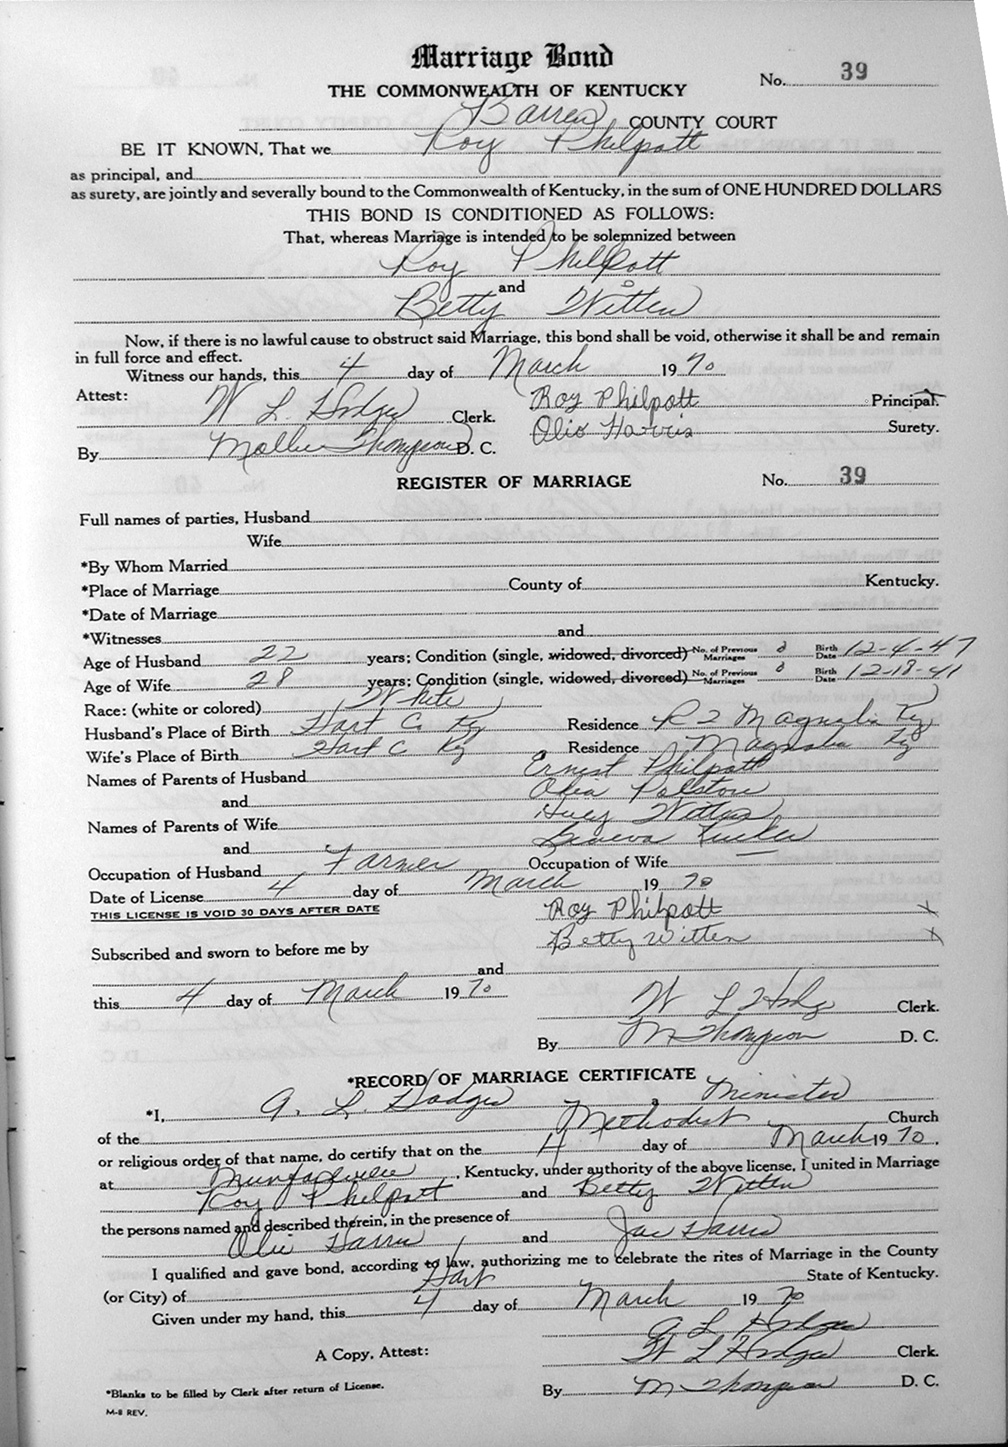 Marriage Bond
No. 39
THE COMMONWEALTH OF KENTUCKY
Barren COUNTY COURT
BE IT KNOWN, That we Roy Philpott
as principal, and
as surety, are jointly and severally bound to the Commonwealth of Kentucky, in the sum of ONE HUNDRED DOLLARS
THIS BOND IS CONDITIONED AS FOLLOWS:
That, whereas Marriage is intended to be solemnized between
Roy Philpott
and
Betty Witten
Now, if there is no lawful cause to obstruct said Marriage, this bond shall be void, otherwise it shall be and remain
in full force and effect.
Witness our hands, this 4 day of March 1970
Attest: W L Hodges Clerk. Roy Philpott Principal.
By Mollie Thompson D. C. Olio Harris Surety.
REGISTER OF MARRIAGE No. 39
Full names of parties, Husband
Wife
*By Whom Married
*Place of Marriage County of Kentucky.
*Date of Marriage
*Witnesses and
Age of Husband 22 years; Condition (single, widowed, divorced) No. of Previous Marriages 0 Birth Date 12-4-47
Age of Wife 28 years; Condition (single, widowed, divorced) No. of Previous Marriages 0 Birth Date 12-18-41
Race: (white or colored) White
Husband's Place of Birth Hart C. Ky Residence R 2 Magnolia Ky
Wife's Place of Birth Hart C Ky Residence Magnolia Ky
Names of Parents of Husband Ernest Philpott
and Ofia Ralston
Names of Parents of Wife Huey Witten
and Geneva Tucker
Occupation of Husband Farmer Occupation of Wife —
Date of License 4 day of March 1970
THIS LICENSE IS VOID 30 DAYS AFTER DATE
Roy Philpott x
Subscribed and sworn to before me by Betty Witten x
and
this 4 day of March 1970
W L Hodges Clerk.
By M Thompson D. C.
*RECORD OF MARRIAGE CERTIFICATE
*I, G. L. Hodges a Minister
of the Methodist Church
or religious order of that name, do certify that on the 4 day of March 1970,
at Munfordville, Kentucky, under authority of the above license, I united in Marriage
Roy Philpott and Betty Witten
the persons named and described therein, in the presence of
Olie Harris and Jae Harris
I qualified and gave bond, according to law, authorizing me to celebrate the rites of Marriage in the County
(or City) of Hart State of Kentucky.
Given under my hand, this 4 day of March 1970
G L Hodges
A Copy, Attest: W L Hodges Clerk.
*Blanks to be filled by Clerk after return of License. By M Thompson D. C.
M-8 REV.